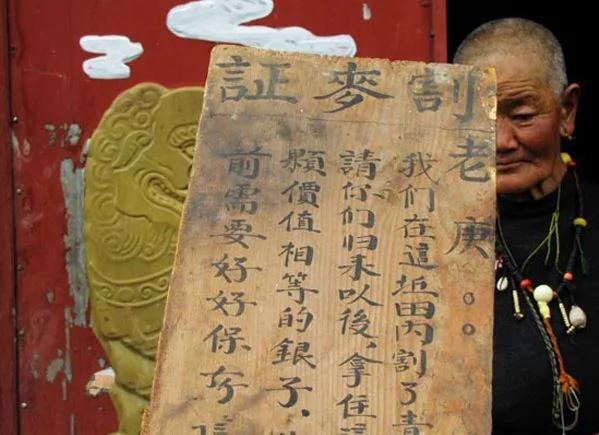 割麥証
老庚。。
我们在這坵田内割了青
請你们归来以後，拿住
顆價值相等的銀子，
前需要好好保存